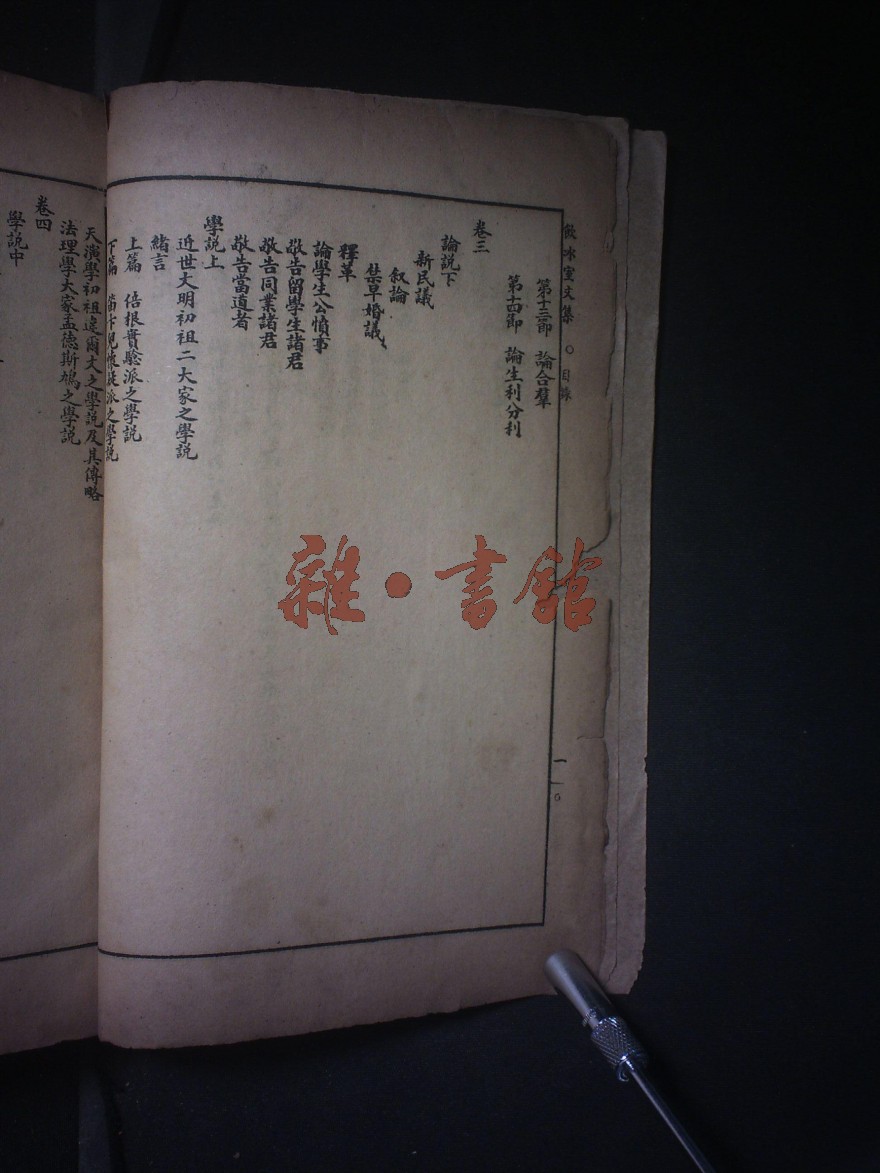 飲冰室文集 〇 目錄
第十三節 論合羣
第十四節 論生利分利
卷三
論説下
新民議
敘論
禁早婚議
釋革
論學生公憤事
敬告留學生諸君
敬告同業諸君
敬告當道者
學説上
近世文明初祖二大家之學説
緒言
上篇 倍根實驗派之學説
下篇 笛卡兒懷疑派之學説
天演學初祖達爾文之學説及其傳略
法理學大家孟德斯鳩之學説
卷四
學説中
雜·書館